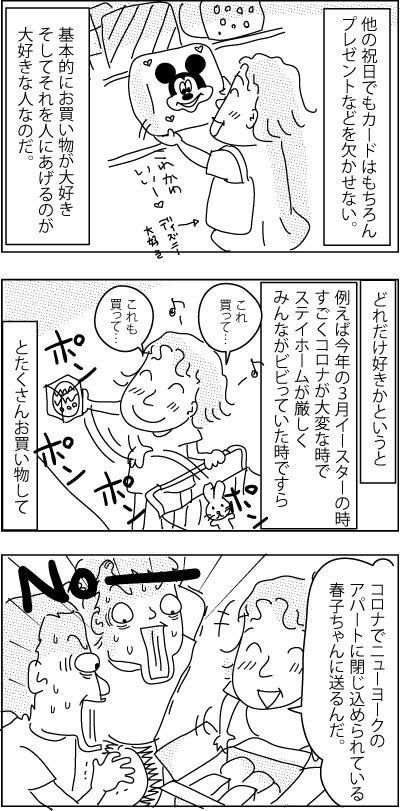 他の祝日でもカードはもちろん
プレゼントなどを欠かせない。
かわ
かわ
いいー
♡
ディズニー
大好き
基本的にお買い物が大好き
そしてそれを人にあげるのが
大好きな人なのだ。
どれだけ好きかというと
例えば今年の3月イースターの時
すごくコロナが大変な時で
ステイホームが厳しく
みんながビビっていた時ですら
これ
買って…
これも
買って…
ポン
ポン
ポン
とたくさんお買い物して
コロナでニューヨークの
アパートに閉じ込められている
春子ちゃんに送るんだ。
No